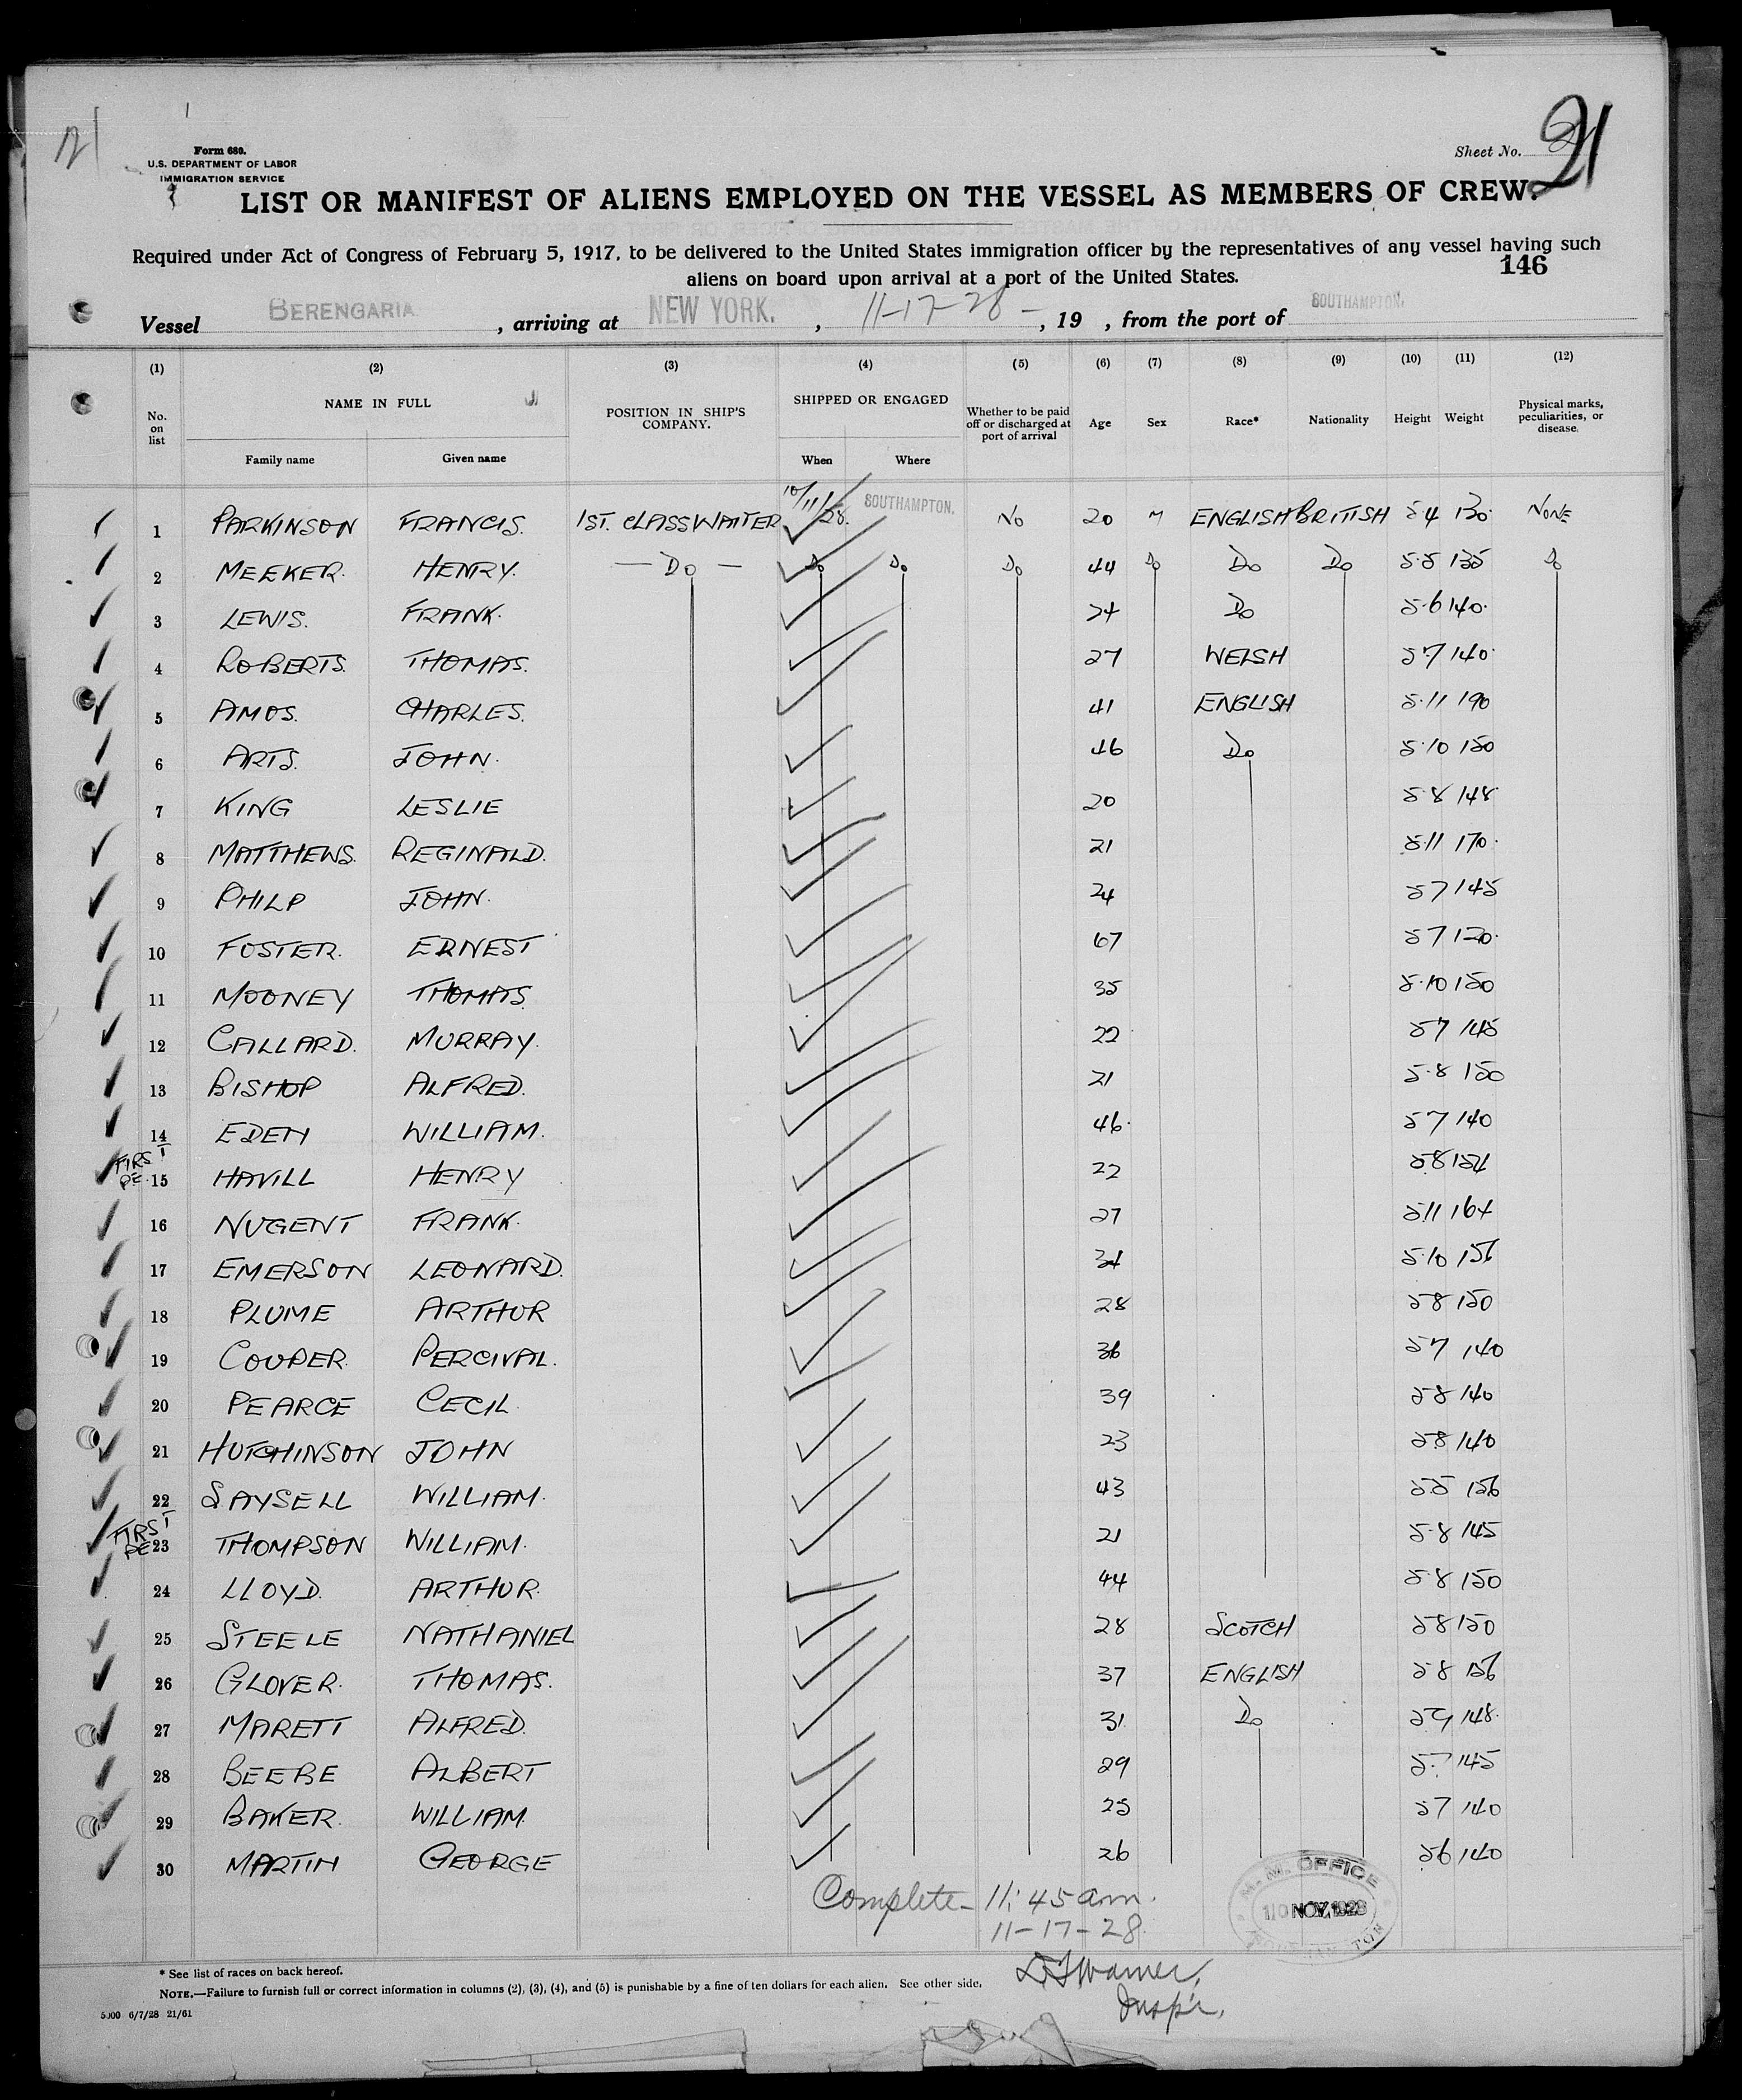 21
Form 680.
U.S. DEPARTMENT OF LABOR
IMMIGRATION SERVICE
Sheet No. 21
LIST OR MANIFEST OF ALIENS EMPLOYED ON THE VESSEL AS MEMBERS OF CREW.
Required under Act of Congress of February 5, 1917, to be delivered to the United States immigration officer by the representatives of any vessel having such
aliens on board upon arrival at a port of the United States.
146
Vessel BERENGARIA, arriving at NEW YORK., 11-17-28 -, 19 , from the port of SOUTHAMPTON.
(1) (2) (3) (4) (5) (6) (7) (8) (9) (10) (11) (12)
No. on list NAME IN FULL POSITION IN SHIP'S COMPANY. SHIPPED OR ENGAGED Whether to be paid off or discharged at port of arrival Age Sex Race* Nationality Height Weight Physical marks, peculiarities, or disease.
Family name Given name When Where
1 PARKINSON FRANCIS. 1ST. CLASS WAITER 10/11/28. SOUTHAMPTON. No 20 M ENGLISH BRITISH 5 4 130. NONE
2 MEEKER. HENRY. — Do — Do Do Do 44 Do Do Do 5.5 135 Do
3 LEWIS. FRANK. 24 Do 5.6 140.
4 ROBERTS. THOMAS. 27 WELSH 5 7 140.
5 AMOS. CHARLES. 41 ENGLISH 5.11 190
6 ARTS. JOHN. 46 Do 5.10 150
7 KING LESLIE 20 5.8 148
8 MATTHEWS. REGINALD. 21 5.11 170.
9 PHILP JOHN. 24 5 7 145
10 FOSTER. ERNEST 67 5 7 120.
11 MOONEY THOMAS 35 5.10 150
12 CALLARD. MURRAY. 22 5 7 145
13 BISHOP ALFRED. 21 5.8 150
14 EDEN WILLIAM. 46. 5 7 140
FIRST
15 HAVILL HENRY 22 5 8 154
16 NUGENT FRANK. 27 5 11 164
17 EMERSON LEONARD. 34 5.10 156
18 PLUME ARTHUR 28 5 8 150
19 COUPER. PERCIVAL. 36 5 7 140
20 PEARCE CECIL. 39 5 8 140
21 HUTCHINSON JOHN 23 5 8 140
22 SAYSELL WILLIAM. 43 5 5 156
FIRST
23 THOMPSON WILLIAM. 21 5.8 145
24 LLOYD. ARTHUR. 44 5.8 150
25 STEELE NATHANIEL 28 SCOTCH 5 8 150
26 GLOVER. THOMAS. 37 ENGLISH 5 8 156
27 MARETT ALFRED. 31 Do 5 9 148.
28 BEEBE ALBERT 29 145
29 BAKER. WILLIAM. 25 5 7 140
30 MARTIN GEORGE 26 5 6 140
Complete - 11:45 am.
11-17-28.
M. M. OFFICE
10 NOV. 1928
Insp'r.
* See list of races on back hereof.
NOTE.—Failure to furnish full or correct information in columns (2), (3), (4), and (5) is punishable by a fine of ten dollars for each alien. See other side.
5000 6/7/28 21/61